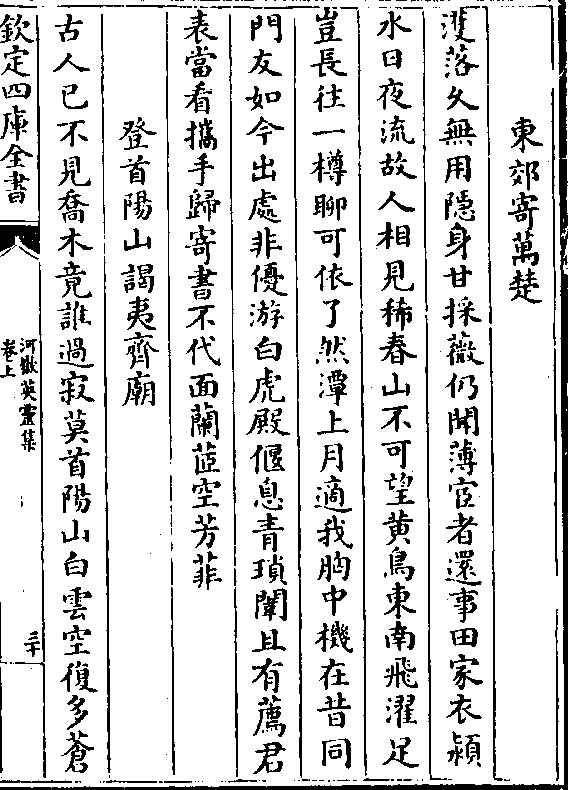 東郊寄萬楚
濩落久無用隠身甘採薇仍聞薄宦者還事田家衣潁
水日夜流故人相見稀春山不可望黄鳥東南飛濯足
豈長往一樽聊可依了然潭上月適我胸中機在昔同
門友如今出處非優游白虎殿偃息青瑣闈且有薦君
表當看攜手歸寄書不代面蘭茝空芳菲
登首陽山謁夷齊廟
古人已不見喬木竟誰過寂莫首陽山白雲空復多蒼
欽定四庫全書
河嶽英靈集
卷上
三十